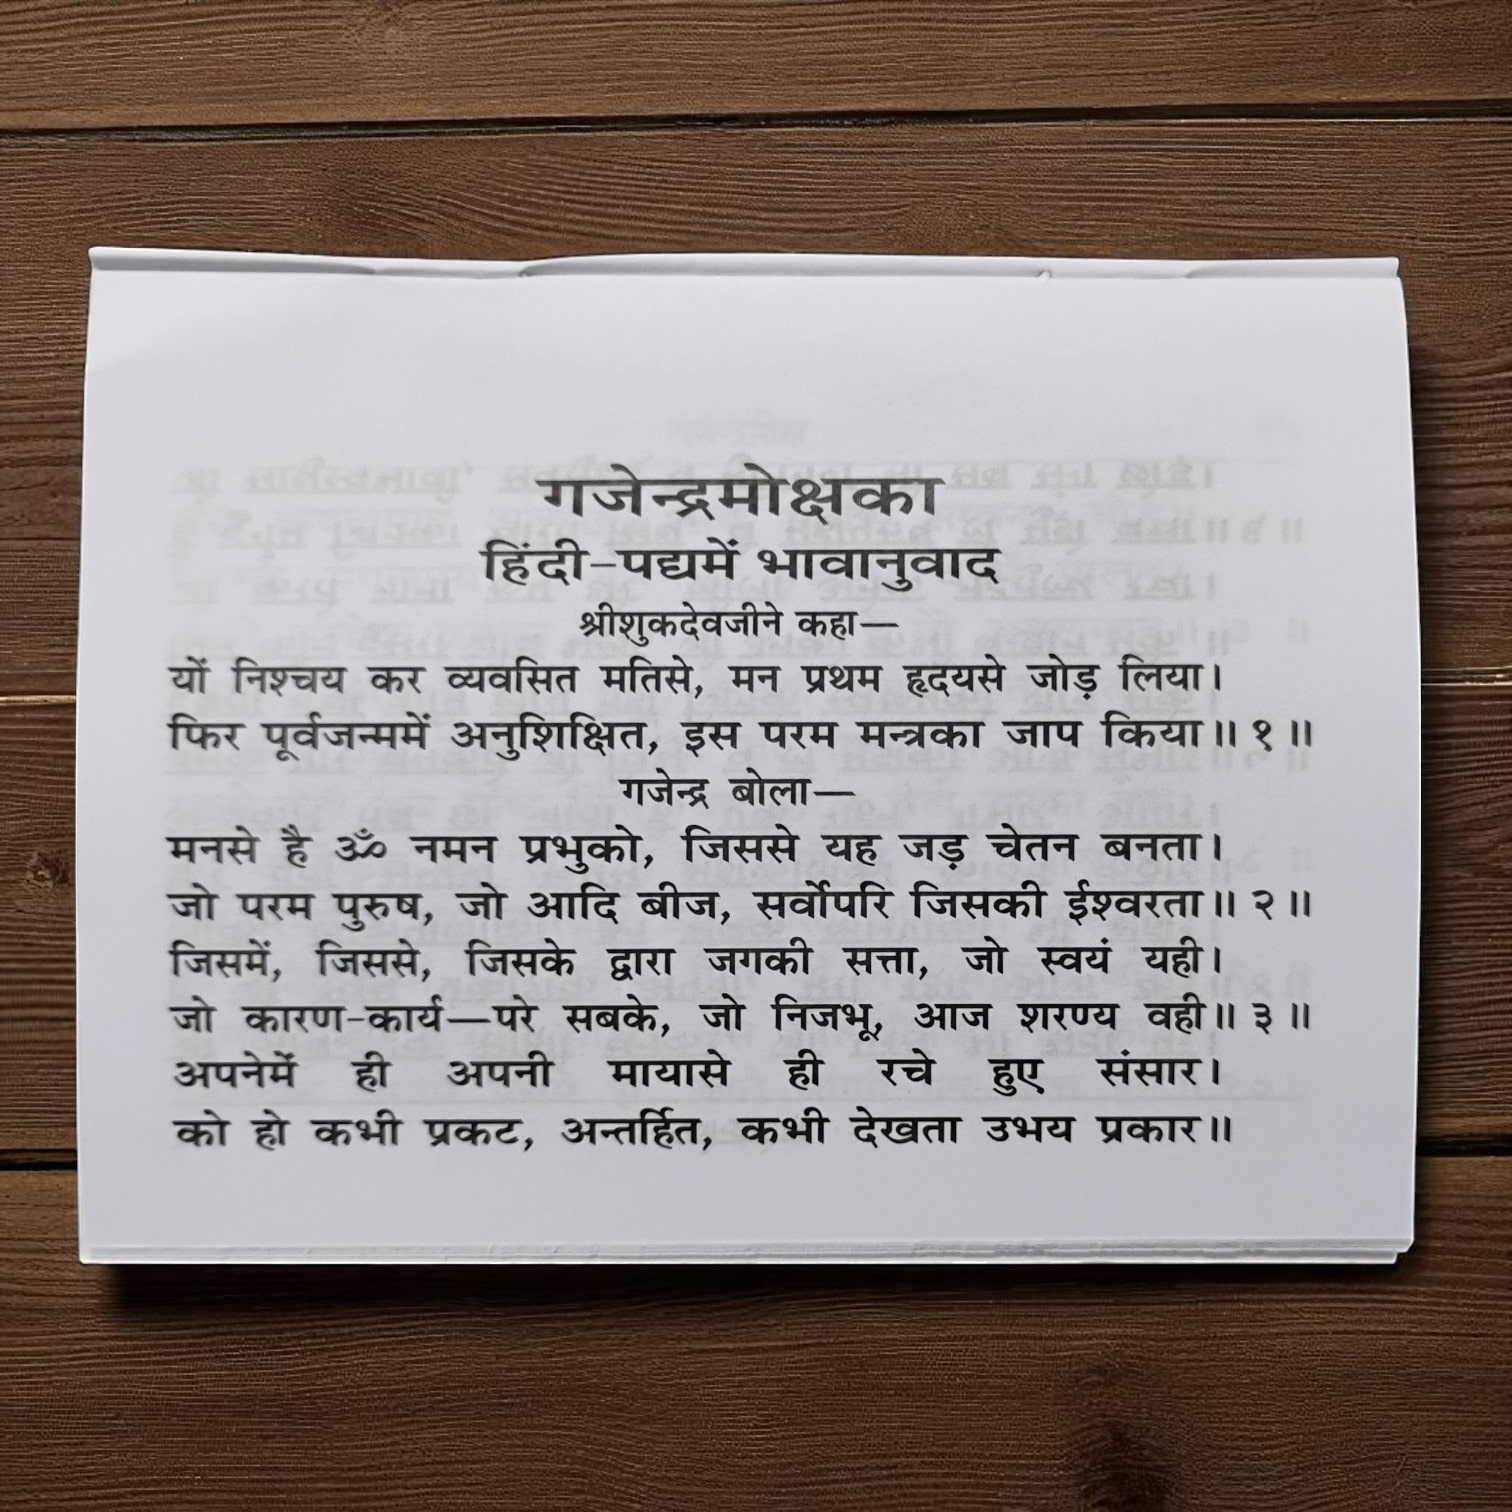 गजेन्द्रमोक्षका
हिंदी-पद्यमें भावानुवाद
श्रीशुकदेवजीने कहा—
यों निश्चय कर व्यवसित मतिसे, मन प्रथम हृदयसे जोड़ लिया।
फिर पूर्वजन्ममें अनुशिक्षित, इस परम मन्त्रका जाप किया॥ १ ॥
गजेन्द्र बोला—
मनसे है ॐ नमन प्रभुको, जिससे यह जड़ चेतन बनता।
जो परम पुरुष, जो आदि बीज, सर्वोपरि जिसकी ईश्वरता॥ २ ॥
जिसमें, जिससे, जिसके द्वारा जगकी सत्ता, जो स्वयं यही।
जो कारण-कार्य—परे सबके, जो निजभू, आज शरण्य वही॥ ३ ॥
अपनेमें ही अपनी मायासे ही रचे हुए संसार।
को हो कभी प्रकट, अन्तर्हित, कभी देखता उभय प्रकार॥